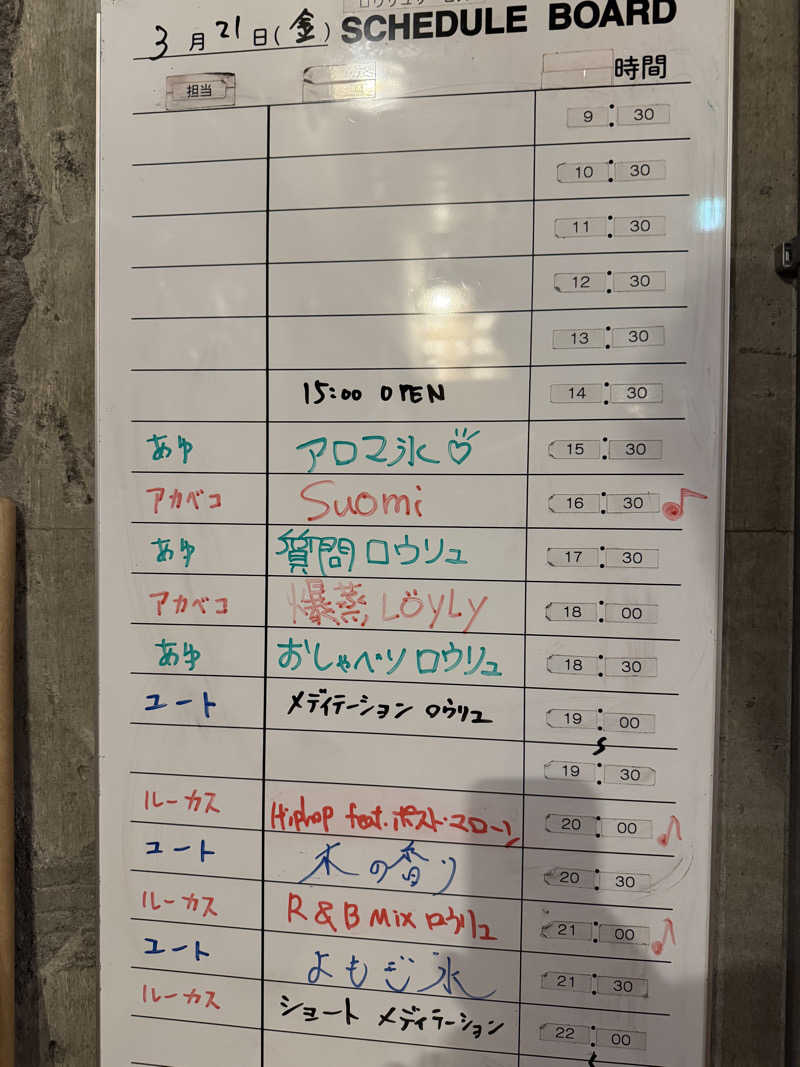 3月21日(金) SCHEDULE BOARD
担当 時間
9:30
10:30
11:30
12:30
13:30
15:00 OPEN 14:30
あゆ アロマ氷♡ 15:30
アカベコ Suomi 16:30 ♪
あゆ 質問ロウリュ 17:30
アカベコ 爆蒸LÖYLY 18:00
あゆ おしゃべりロウリュ 18:30
ユート メディテーション ロウリュ 19:00
19:30
ルーカス Hiphop feat.ポスト・マローン 20:00 ♪
ユート 木の香り 20:30
ルーカス R&B Mix ロウリュ 21:00 ♪
ユート よもぎ氷 21:30
ルーカス ショート メディテーション 22:00